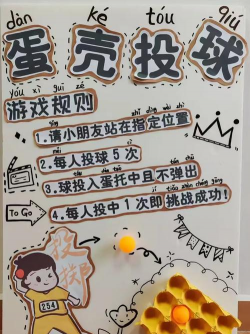 dàn ké tóu qiú
蛋壳投球
yóu xì guī zé
游戏规则
zhǐ dìng wèi zhì
1.请小朋友站在指定位置
2.每人投球5次
3.球投入蛋托中且不弹出
tiǎo zhàn chéng gōng
4.每人投中1次即挑战成功！
To Go
投掷
254